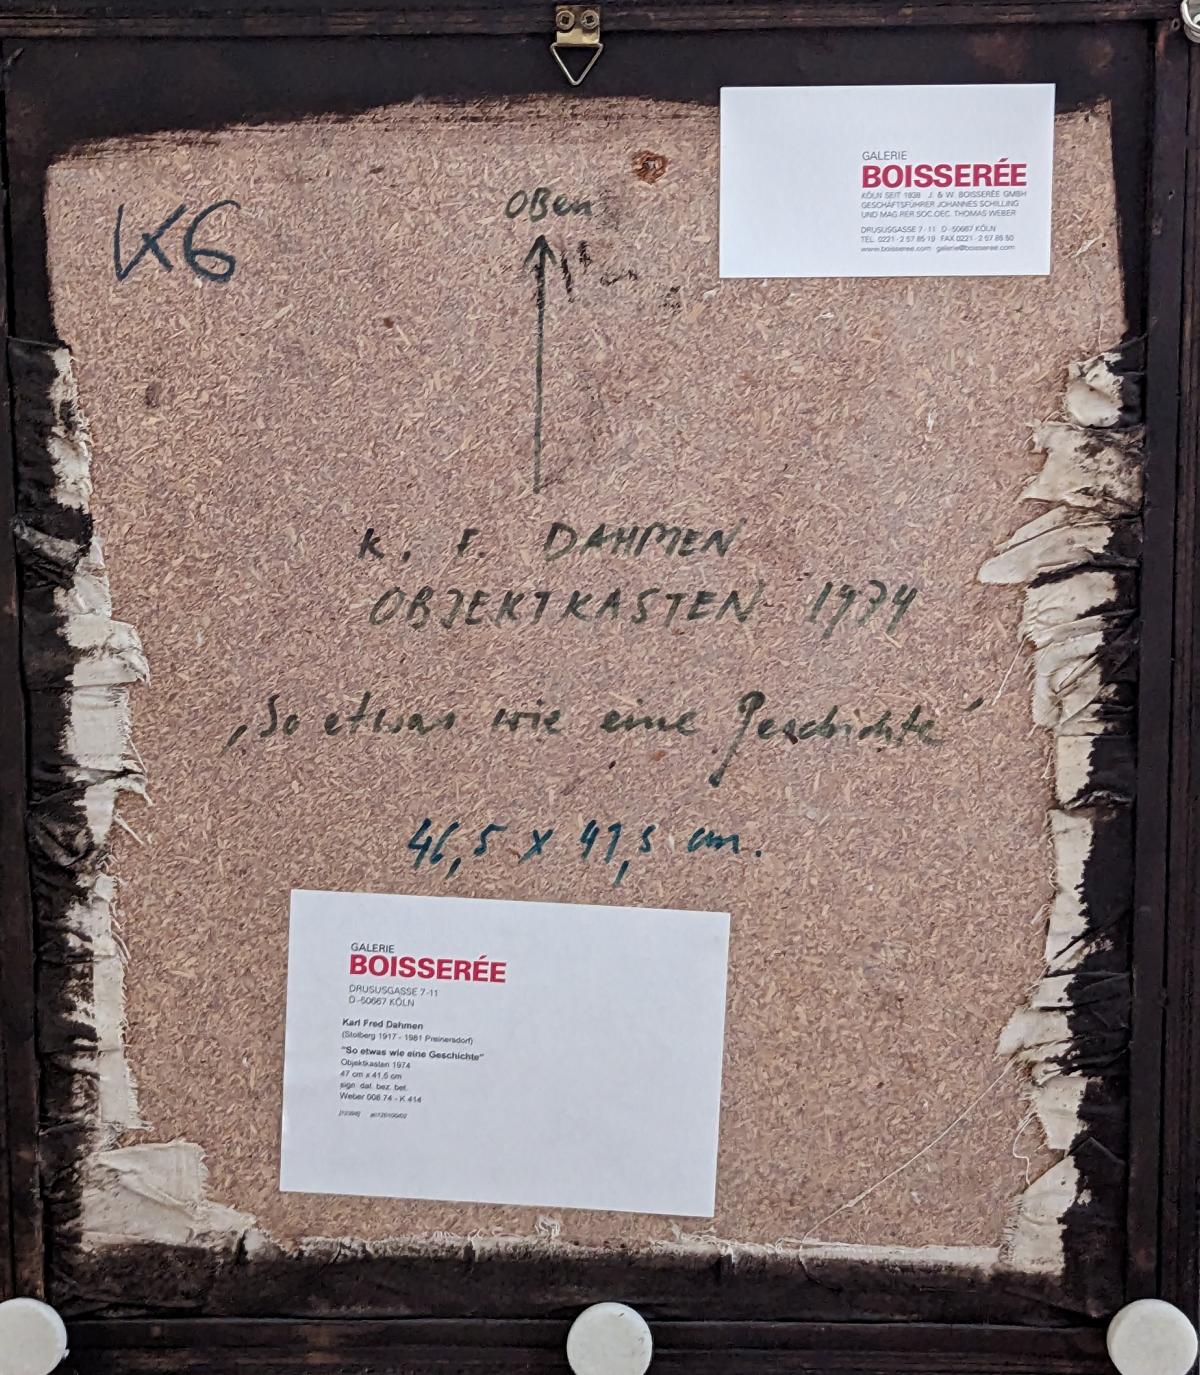 GALERIE
BOISSERÉE
KÖLN SEIT 1838 J. & W. BOISSERÉE GMBH
GESCHÄFTSFÜHRER JOHANNES SCHILLING
UND MAG.RER.SOC.OEC. THOMAS WEBER
DRUSUSGASSE 7-11 D-50667 KÖLN
TEL. 0221-2 57 85 19 FAX 0221-2 57 85 50
www.boisseree.com galerie@boisseree.com
K6
OBen
K. F. DAHMEN
OBJEKTKASTEN 1974
„So etwas wie eine Geschichte“
46,5 x 41,5 cm.
GALERIE
BOISSERÉE
DRUSUSGASSE 7-11
D-50667 KÖLN
Karl Fred Dahmen
(Stolberg 1917 - 1981 Preinersdorf)
"So etwas wie eine Geschichte"
Objektkasten 1974
47 cm x 41,5 cm
sign. dat. bez. bet.
Weber 008.74 - K 414